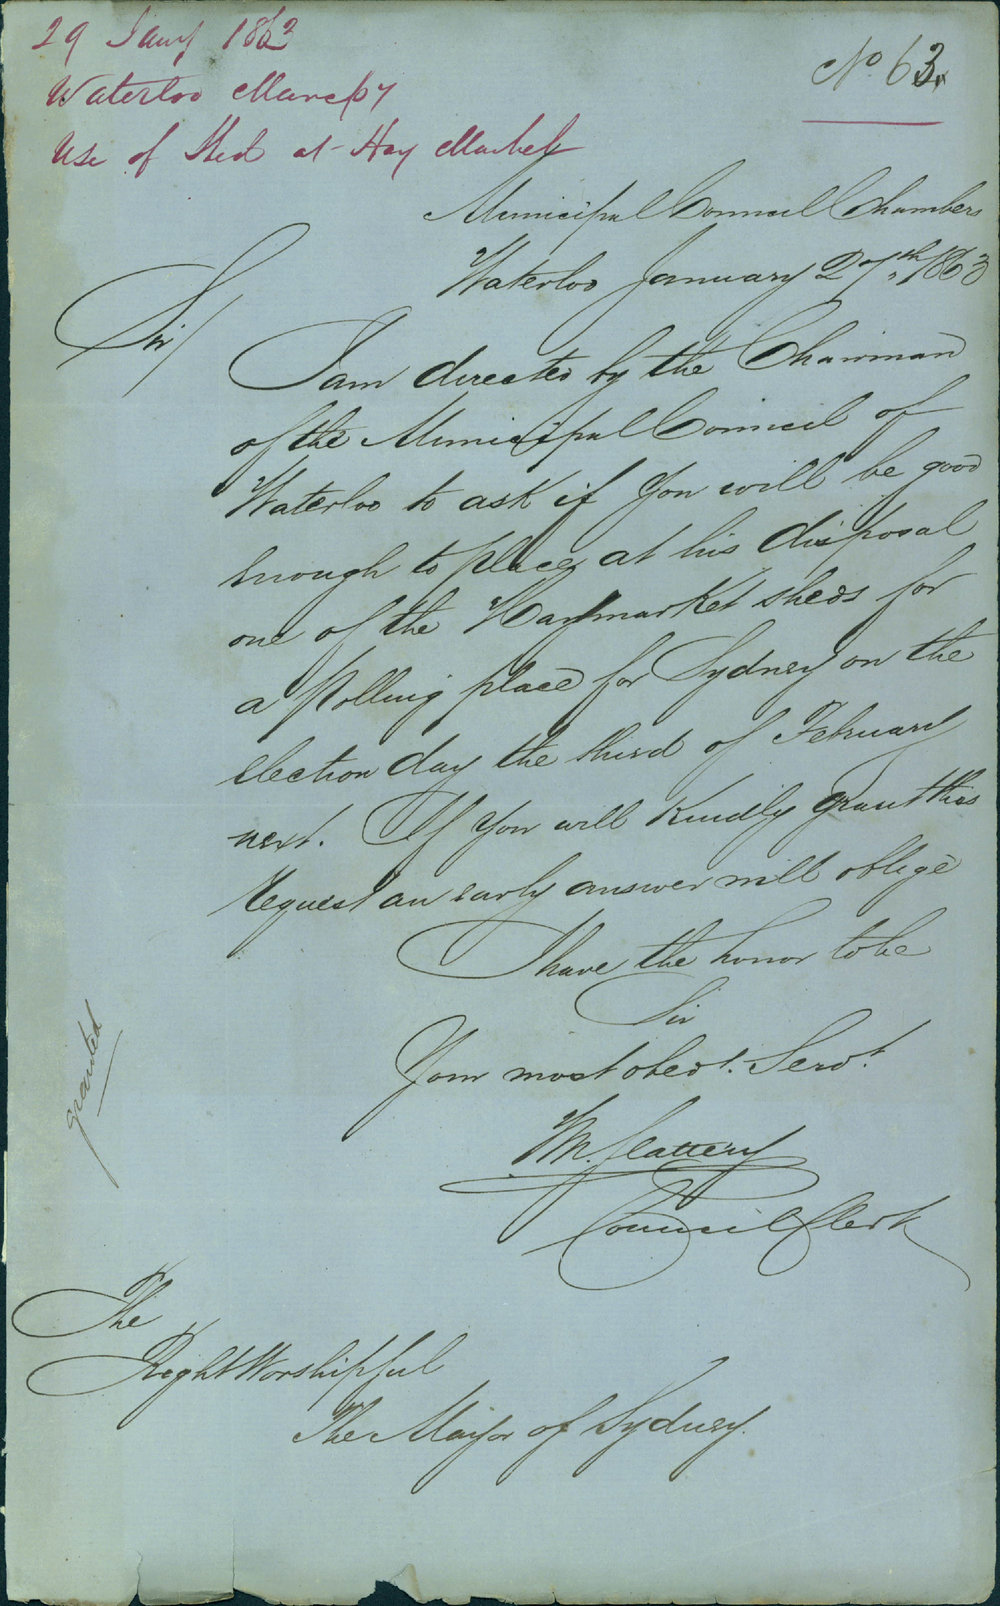 29 Jany 1863
Waterloo Municipy
Use of Shed at Hay Market
No. 63
Municipal Council Chambers
Waterloo January 27th 1863
Sir/
I am directed by the Chairman
of the Municipal Council of
Waterloo to ask if you will be good
enough to place at his disposal
one of the Haymarket sheds for
a Polling place for Sydney on the
election day the third of February
next. If you will kindly grant this
request an early answer will oblige
I have the honor to be
Sir
Your most obedt. Servt.
Wm. Slattery
Council Clerk
granted
The
Right Worshipful
The Mayor of Sydney.